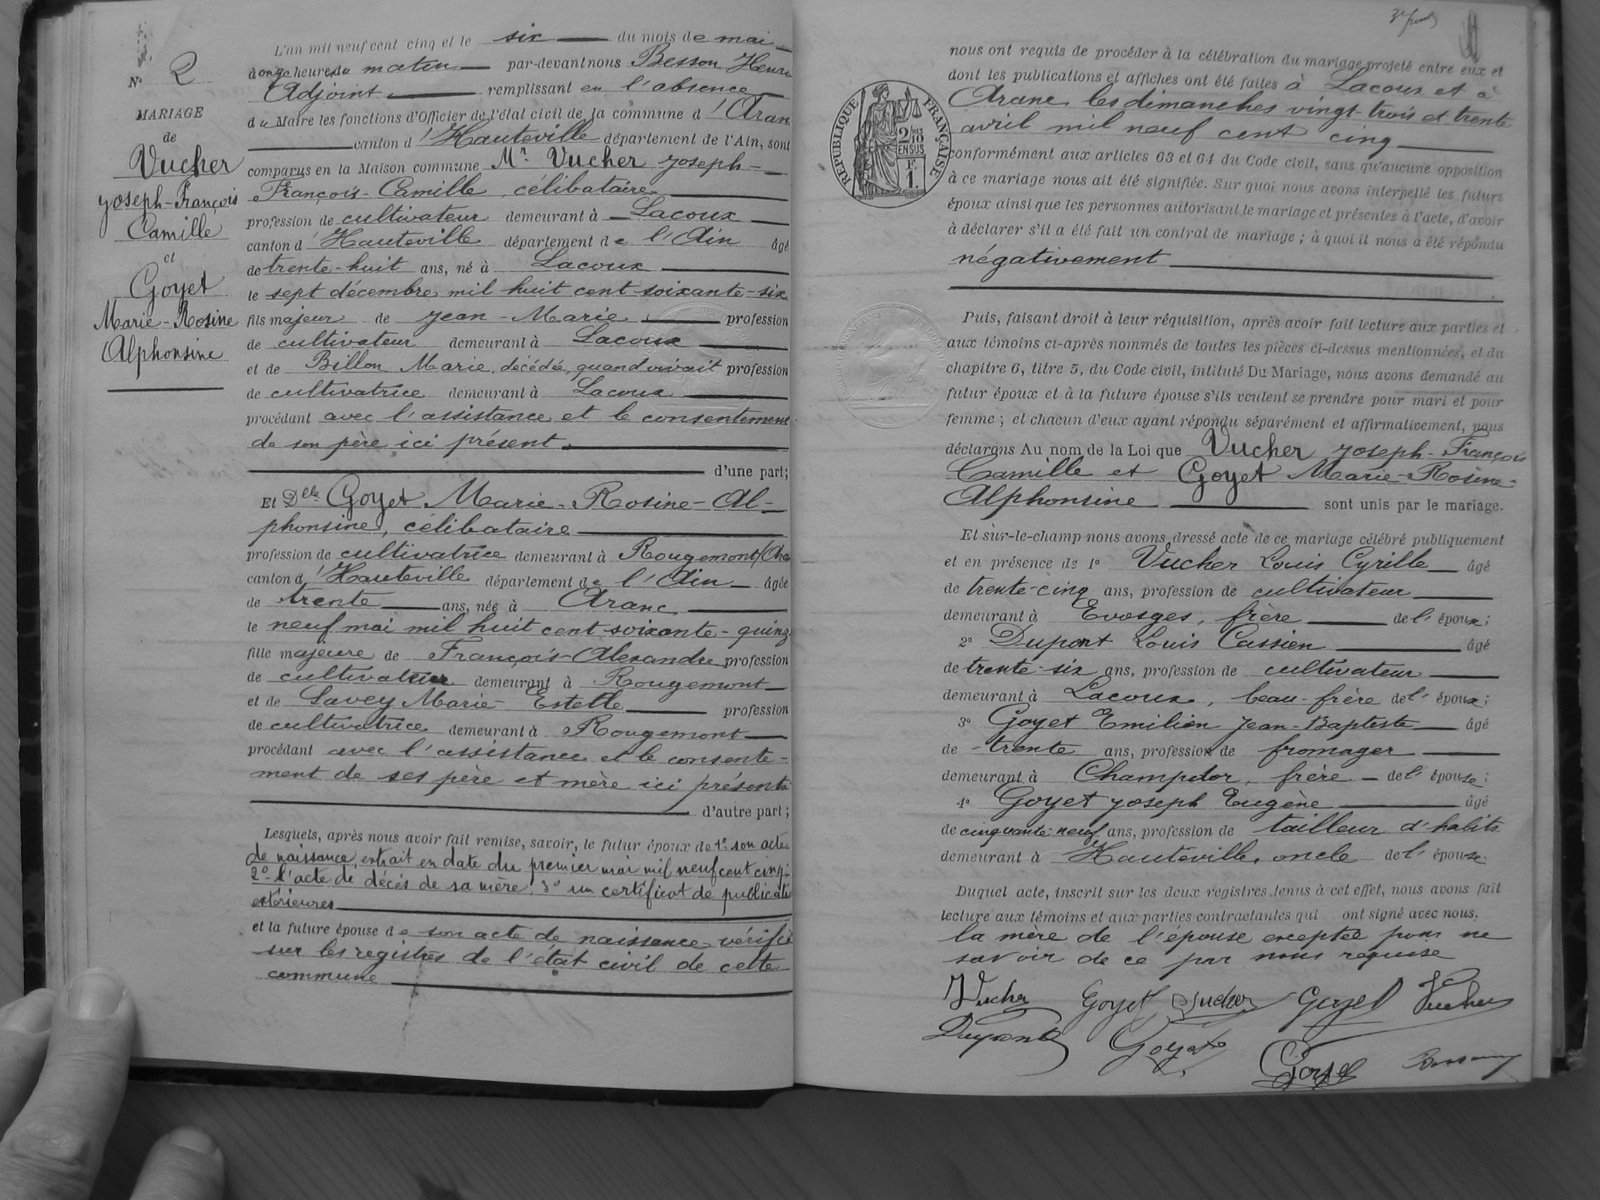 N° 2
MARIAGE
de
Vucher
Joseph-François
Camille
et
Goyet
Marie-Rosine
Alphonsine
L'an mil neuf cent cinq et le six du mois de mai
à onze heures du matin par-devant nous Besson Henri
Adjoint remplissant en l'absence
du Maire les fonctions d'Officier de l'état civil de la commune d'Aran
canton d'Hauteville département de l'Ain, sont
comparus en la Maison commune Mr. Vucher Joseph-
François-Camille, célibataire
profession de cultivateur demeurant à Lacoux
canton d'Hauteville département de l'Ain âgé
de trente-huit ans, né à Lacoux
le sept décembre mil huit cent soixante-six
fils majeur de Jean-Marie profession
de cultivateur demeurant à Lacoux
et de Billon Marie, décédée, quand vivait profession
de cultivatrice demeurant à Lacoux
procédant avec l'assistance et le consentement
de son père ici présent.
d'une part;
Et Dlle Goyet Marie-Rosine-Al-
phonsine, célibataire
profession de cultivatrice demeurant à Rougemont
canton d'Hauteville département de l'Ain âgée
de trente ans, née à Aranc
le neuf mai mil huit cent soixante-quinz
fille majeure de François-Alexandre profession
de cultivateur demeurant à Rougemont
et de Savey Marie-Estelle profession
de cultivatrice demeurant à Rougemont
procédant avec l'assistance et le consente-
ment de ses père et mère ici présents
d'autre part;
Lesquels, après nous avoir fait remise, savoir, le futur époux de 1° son acte
de naissance, extrait en date du premier mai mil neuf cent cinq;
2° l'acte de décès de sa mère; 3° un certificat de publicati
extérieures
et la future épouse de son acte de naissance vérifié
sur les registres de l'état civil de cette
commune
nous ont requis de procéder à la célébration du mariage projeté entre eux et
dont les publications et affiches ont été faites à Lacoux et à
Aranc les dimanches vingt-trois et trente
avril mil neuf cent cinq
RÉPUBLIQUE FRANÇAISE
2/10
EN SUS
1 F.
conformément aux articles 63 et 64 du Code civil, sans qu'aucune opposition
à ce mariage nous ait été signifiée. Sur quoi nous avons interpellé les futurs
époux ainsi que les personnes autorisant le mariage et présentes à l'acte, d'avoir
à déclarer s'il a été fait un contrat de mariage; à quoi il nous a été répondu
négativement
Puis, faisant droit à leur réquisition, après avoir fait lecture aux parties et
aux témoins ci-après nommés de toutes les pièces ci-dessus mentionnées, et du
chapitre 6, titre 5, du Code civil, intitulé Du Mariage, nous avons demandé au
futur époux et à la future épouse s'ils veulent se prendre pour mari et pour
femme; et chacun d'eux ayant répondu séparément et affirmativement, nous
déclarons Au nom de la Loi que Vucher Joseph-François
Camille et Goyet Marie-Rosine-
Alphonsine sont unis par le mariage.
Et sur-le-champ nous avons dressé acte de ce mariage célébré publiquement
et en présence de 1° Vucher Louis Cyrille âgé
de trente-cinq ans, profession de cultivateur
demeurant à Evosges, frère de l'époux;
2° Dupont Louis Cassien âgé
de trente-six ans, profession de cultivateur
demeurant à Lacoux, beau-frère de l'époux;
3° Goyet Emilien Jean-Baptiste âgé
de trente ans, profession de fromager
demeurant à Champdor, frère de l'épouse;
4° Goyet Joseph Eugène âgé
de cinquante-neuf ans, profession de tailleur d'habits
demeurant à Hauteville, oncle de l'épouse
Duquel acte, inscrit sur les deux registres tenus à cet effet, nous avons fait
lecture aux témoins et aux parties contractantes qui ont signé avec nous.
la mère de l'épouse exceptée pour ne
savoir de ce par nous requise
J Vucher Goyet Vucher Goyet Vucher
Dupont Goyet Goyet Besson